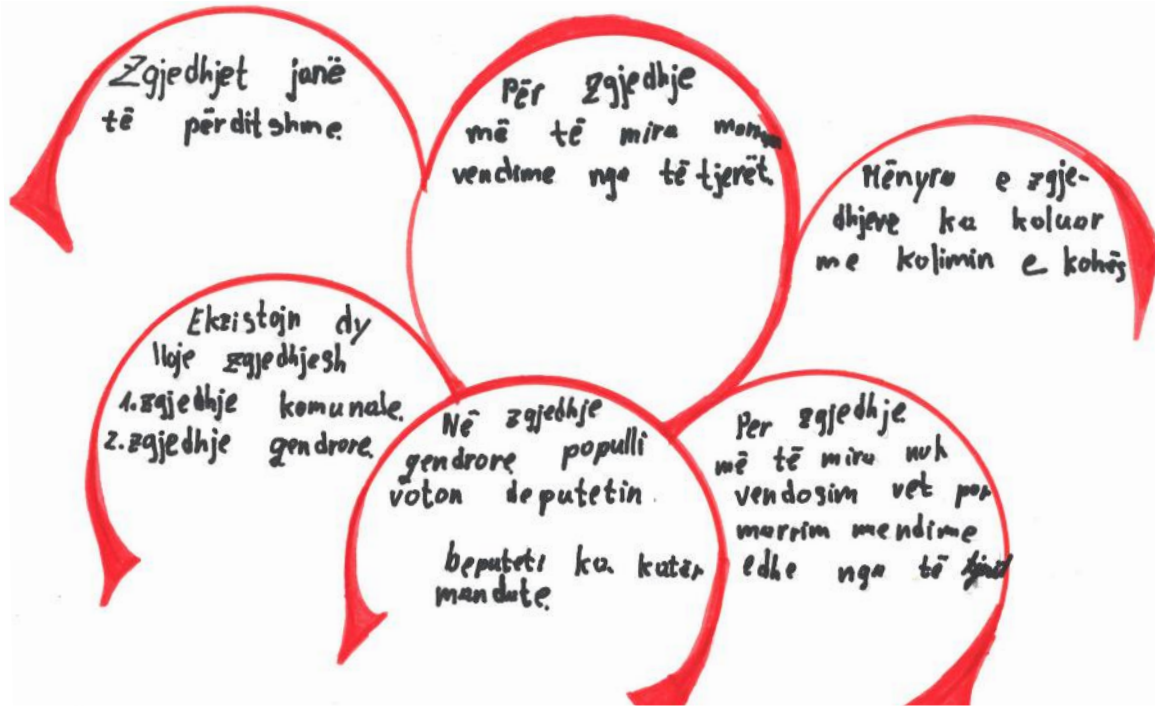 Zgjedhjet janë
të përditshme.
Për zgjedhje
më të mira
vendime nga të tjerët.
Mënyra e zgje-
dhjeve ka koluar
me kolimin e kohës
Ekzistojn dy
lloje zgjedhjesh
1.zgjedhje komunale.
2.zgjedhje qendrore.
Në zgjedhje
qendrore populli
voton deputetin
beputeti ka katër
mandate.
Per zgjedhje
më të mira nuk
vendosim vet por
marrim mendime
edhe nga të